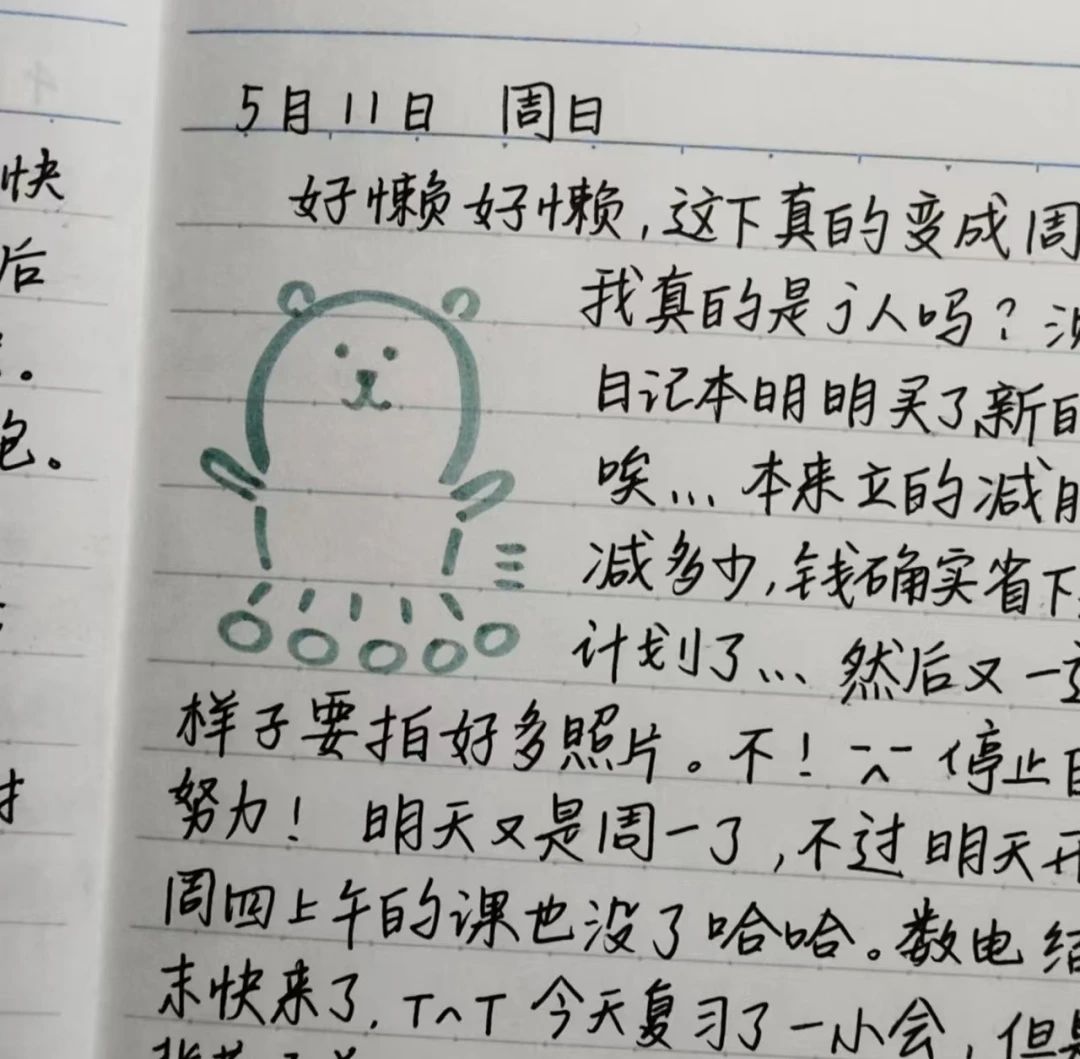 快
后
。
包。
5月11日 周日
好懒好懒,这下真的变成周
我真的是个人吗?没
日记本明明买了新的
唉... 本来立的减肥
减多少,钱确实省下
计划了... 然后又一
样子要拍好多照片。不! 停止自
努力! 明天又是周一了,不过明天开
周四上午的课也没了哈哈。数电结
末快来了, T^T 今天复习了一小会,但是